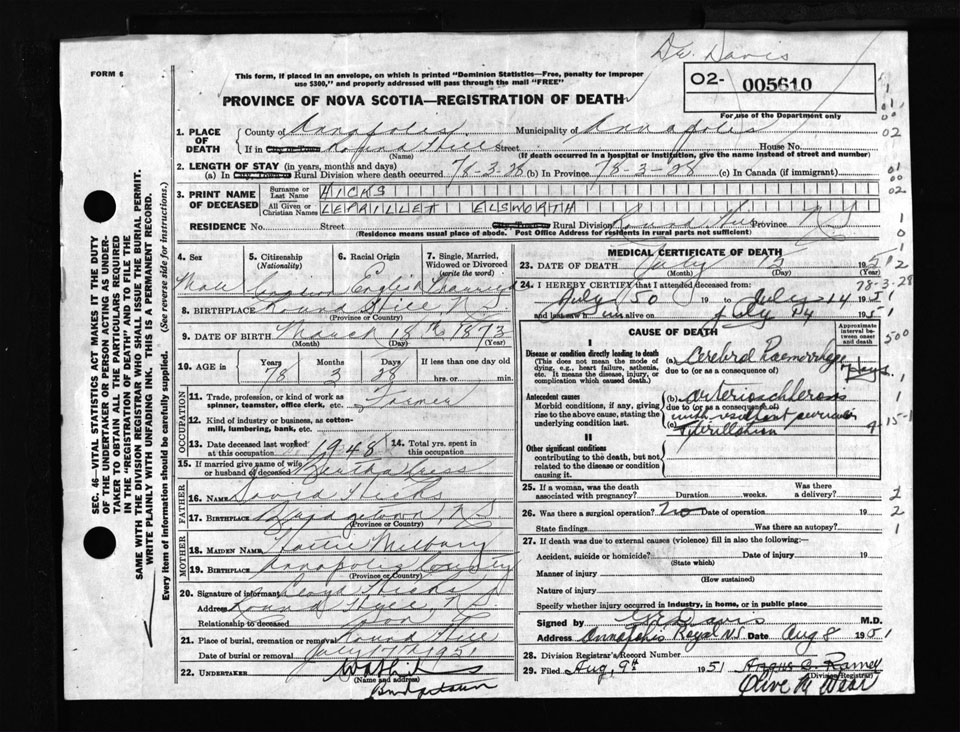 Dr. Davis
FORM 6
This form, if placed in an envelope, on which is printed "Dominion Statistics—Free, penalty for improper
use $300," and properly addressed will pass through the mail "FREE"
O2- 005610
For use of the Department only
PROVINCE OF NOVA SCOTIA—REGISTRATION OF DEATH
1. PLACE OF DEATH
County of Annapolis Municipality of Annapolis
If in City or Town Round Hill Street House No.
(Name) (If death occurred in a hospital or institution, give the name instead of street and number)
2. LENGTH OF STAY (in years, months and days)
(a) In City, Town or Rural Division where death occurred 78-3-28 (b) In Province 78-3-28 (c) In Canada (if immigrant)
3. PRINT NAME OF DECEASED
Surname or Last Name HICKS
All Given or Christian Names ELSWORTH
RESIDENCE No. Street City, Town or Rural Division Round Hill Province N S
(Residence means usual place of abode. Post Office Address for residents in rural parts not sufficient)
4. Sex Male
5. Citizenship (Nationality)
6. Racial Origin English
7. Single, Married, Widowed or Divorced (write the word) Married
8. BIRTHPLACE Round Hill, N.S.
(Province or Country)
9. DATE OF BIRTH March 18th 1873
(Month) (Day) (Year)
10. AGE in Years 78 Months 3 Days 28 If less than one day old
hrs. or min.
OCCUPATION
11. Trade, profession, or kind of work as spinner, teamster, office clerk, etc. Farmer
12. Kind of industry or business, as cotton-mill, lumbering, bank, etc.
13. Date deceased last worked at this occupation 1948
14. Total yrs. spent in this occupation
15. If married give name of wife or husband of deceased Bertha
FATHER
16. NAME David Hicks
17. BIRTHPLACE Bridgetown, N.S.
(Province or Country)
MOTHER
18. MAIDEN NAME Milbury
19. BIRTHPLACE Annapolis County
(Province or Country)
20. Signature of informant Lloyd Hicks
Address Round Hill, N.S.
Relationship to deceased Son
21. Place of burial, cremation or removal Round Hill
Date of burial or removal July 17th 1951
22. UNDERTAKER
(Name and address)
Bridgetown
MEDICAL CERTIFICATE OF DEATH
23. DATE OF DEATH July 15 1951
(Month) (Day) (Year)
78-3-28
24. I HEREBY CERTIFY that I attended deceased from:
July 50 19 to July 14 1951
and last saw him alive on July 14 1951
CAUSE OF DEATH
Approximate interval between onset and death
I
Disease or condition directly leading to death
(This does not mean the mode of dying, e.g., heart failure, asthenia, etc. It means the disease, injury, or complication which caused death.)
(a) Cerebral Haemorrhage days
due to (or as a consequence of)
Antecedent causes
Morbid conditions, if any, giving rise to the above cause, stating the underlying condition last.
(b) arteriosclerosis
due to (or as a consequence of)
with resultant auricular
(c) Fibrillation
II
Other significant conditions
contributing to the death, but not related to the disease or condition causing it.
25. If a woman, was the death associated with pregnancy? Duration weeks. Was there a delivery?
26. Was there a surgical operation? no Date of operation 19
State findings Was there an autopsy?
27. If death was due to external causes (violence) fill in also the following:—
Accident, suicide or homicide? Date of injury 19
(State which)
Manner of injury
(How sustained)
Nature of injury
Specify whether injury occurred in industry, in home, or in public place
Signed by Davis M.D.
Address Annapolis Royal N.S. Date Aug 8 1951
28. Division Registrar's Record Number
29. Filed Aug. 9th 1951
(Division Registrar)
Olive M
SEC. 46—VITAL STATISTICS ACT MAKES IT THE DUTY
OF THE UNDERTAKER OR PERSON ACTING AS UNDER-
TAKER TO OBTAIN ALL THE PARTICULARS REQUIRED
IN THE "REGISTRATION OF DEATH" AND TO FILE THE
SAME WITH THE DIVISION REGISTRAR WHO SHALL ISSUE THE BURIAL PERMIT.
WRITE PLAINLY WITH UNFADING INK. THIS IS A PERMANENT RECORD.
Every item of information should be carefully supplied. (See reverse side for instructions.)